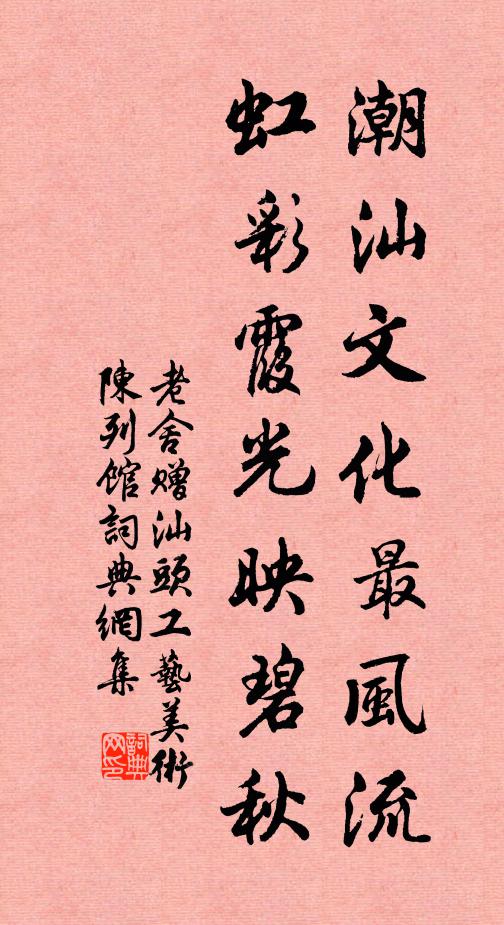 潮汕文化最風流
虹彩霞光映碧秋
老舍贈汕頭工藝美術
陳列館詞典網集
詞典
网印